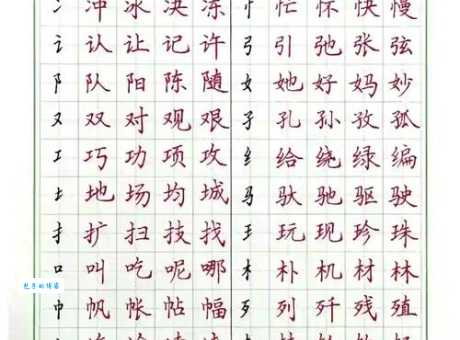 冫 冲 冰 决 冻 忄 忙 怀 快 慢
讠 认 让 记 许 弓 引 弛 张 弦
阝 队 阳 陈 随 女 她 好 妈 妙
又 双 对 观 艰 子 孔 孙 孜 孤
工 巧 功 项 攻 纟 给 绕 绿 编
土 地 场 均 城 马 驮 驰 驱 驶
扌 扩 扫 技 找 王 玩 现 珍 珠
口 叫 吃 呢 哪 木 朴 机 材 林
巾 帆 帐 帖 幅 歹 列 歼 残 殖